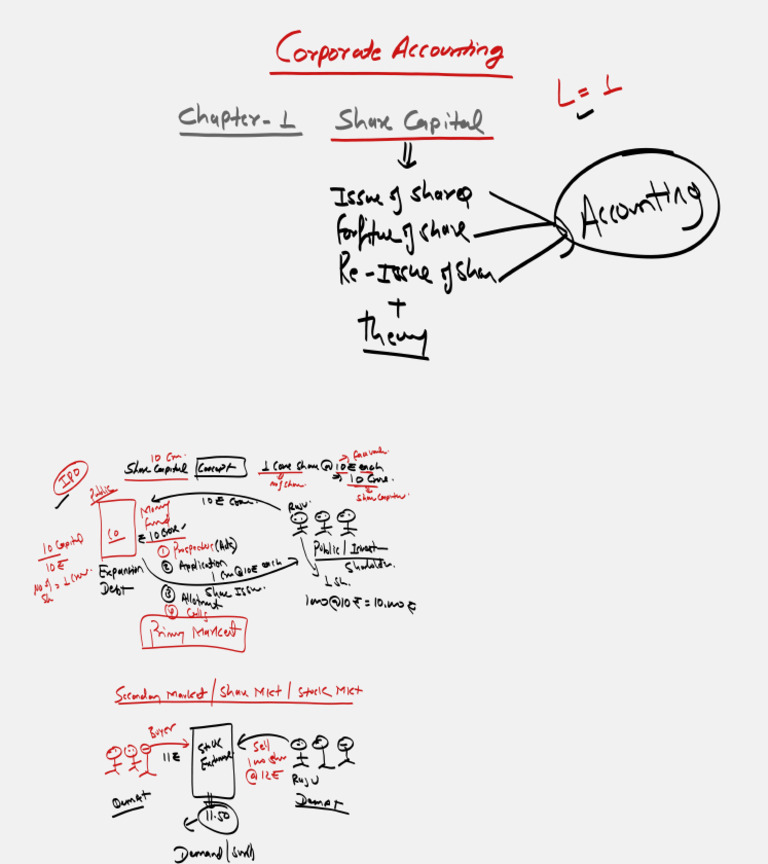 Corporate Accounting
L = 1
Chapter-1 Share Capital
Issue of share
Forfitue of share
Re-Issue of Shar
Accounting
+
Theory
IPO
10 Crore.
Share Capital Concept
1 Crore share @ 10₹ each
Face value.
No of share.
10 Crore.
Share capital
Public
Co
Money
Fund
₹ 10 Crore
10 ₹ Crore.
Raju
Public / Invest
Shareholder.
1 Sh.
1000 @ 10 ₹ = 10,000 ₹
① Prospectus (Ads)
② Application
1 Cr @ 10₹ each
Share Issue.
③ Allotment
④ Calls
Expansion
Debt
10 Capital
10 ₹
No of = 1 Crore.
Sh
Primary Market
Secondary Market / Share Mkt / Stock Mkt
Buyer
11 ₹
Stock
Exchange
Sell
@ 12₹
Raju
Demat
Demat
11.50
Demand /